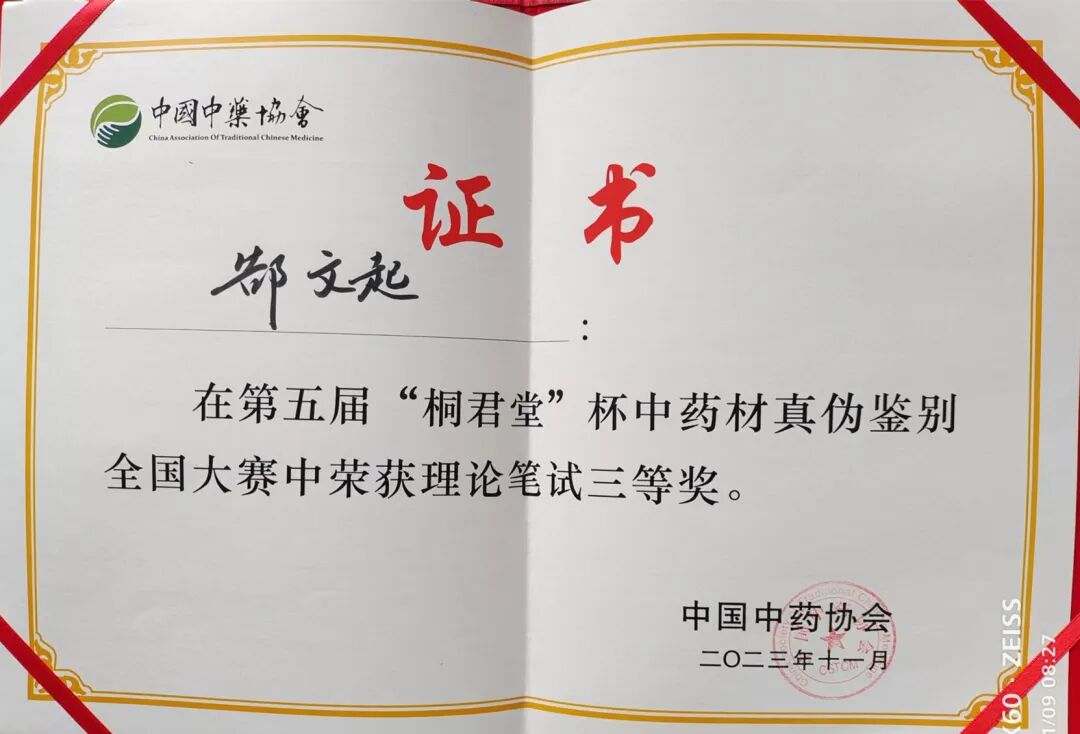 中國中藥協會
China Association Of Traditional Chinese Medicine
证书
郜文起：
在第五届“桐君堂”杯中药材真伪鉴别
全国大赛中荣获理论笔试三等奖。
中国中药协会
二〇二三年十一月
CSTCM
X60 · ZEISS
1/09 08:27